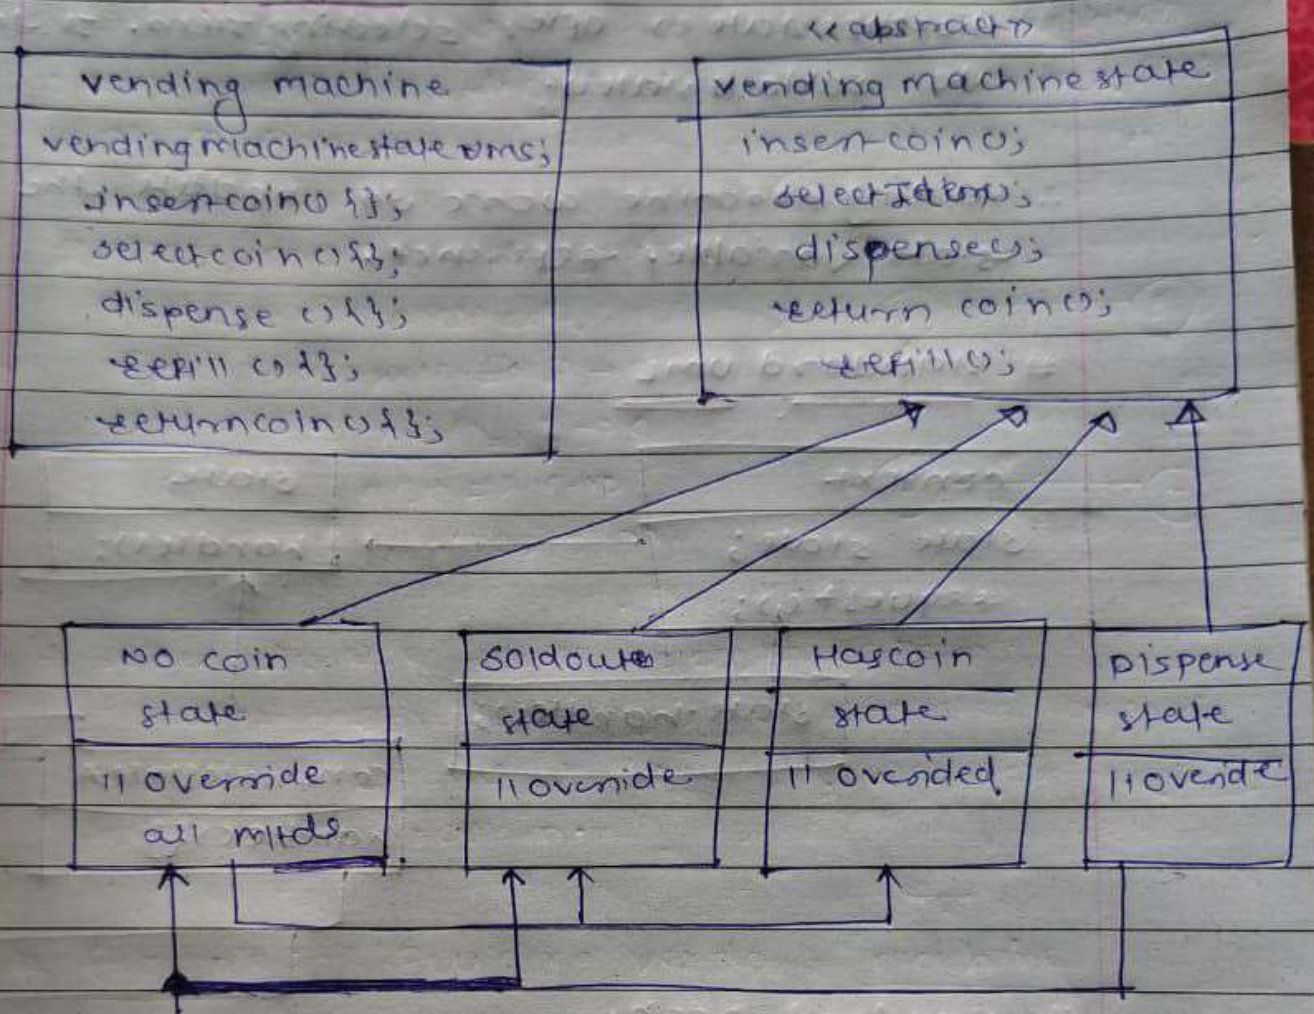 <<abstract>>
vending machine
vendingmachinestate vms;
insertcoin() {};
selectcoin() {};
dispense () {};
refill () {};
returncoin() {};
vending machine state
insertcoin();
selectItem();
dispense();
return coin();
refill();
No coin
state
// override
all mtds
Soldout
state
// override
Hascoin
state
// overided
Dispense
state
// overide